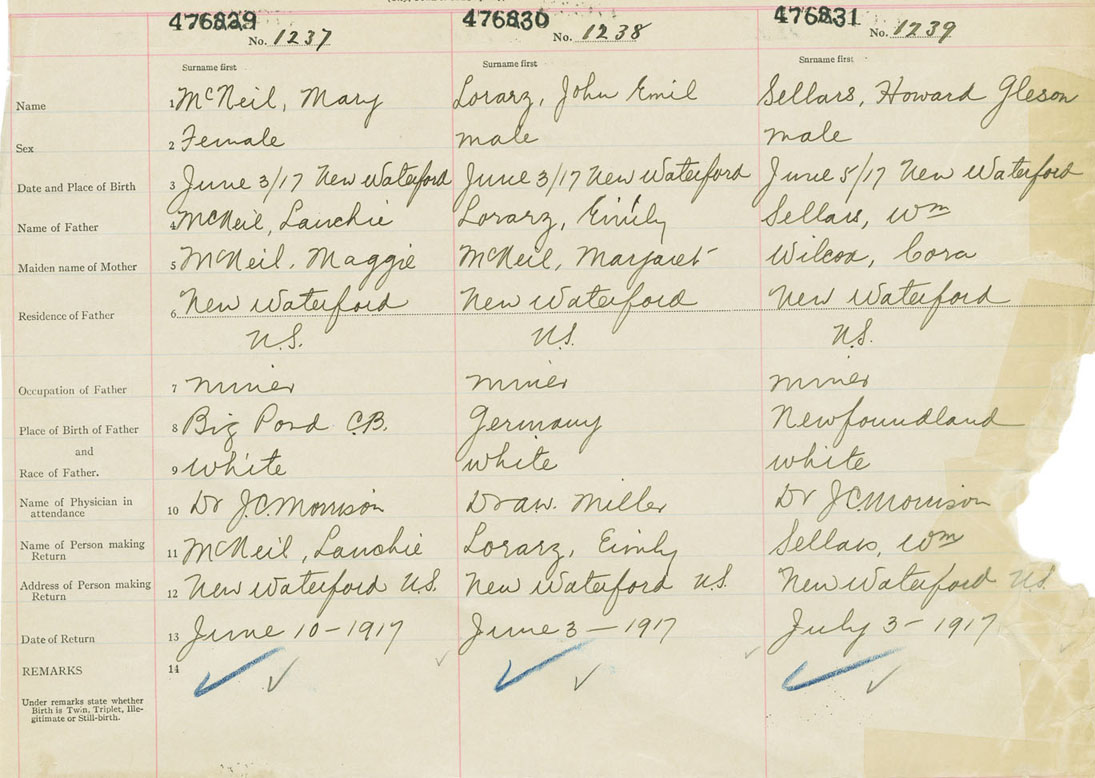 476829 476830 476831
No. 1237 No. 1238 No. 1239
Surname first Surname first Surname first
Name 1 McNeil, Mary Lorarz, John Emil Sellars, Howard Gleson
Sex 2 Female male male
Date and Place of Birth 3 June 3/17 New Waterford June 3/17 New Waterford June 5/17 New Waterford
Name of Father 4 McNeil, Lauchie Lorarz, Eimily Sellars, Wm
Maiden name of Mother 5 McNeil, Maggie McNeil, Margaret Wilcox, Cora
Residence of Father 6 New Waterford New Waterford New Waterford
N.S. N.S. N.S.
Occupation of Father 7 miner miner miner
Place of Birth of Father 8 Big Pond C.B. Germany Newfoundland
and
Race of Father. 9 White white white
Name of Physician in
attendance 10 Dr J.C. Morrison Dr A.W. Miller Dr J.C. Morrison
Name of Person making
Return 11 McNeil, Lauchie Lorarz, Eimly Sellars, Wm
Address of Person making
Return 12 New Waterford N.S. New Waterford N.S. New Waterford N.S.
Date of Return 13 June 10-1917 June 3-1917 July 3-1917
REMARKS 14
Under remarks state whether
Birth is Twin, Triplet, Ille-
gitimate or Still-birth.